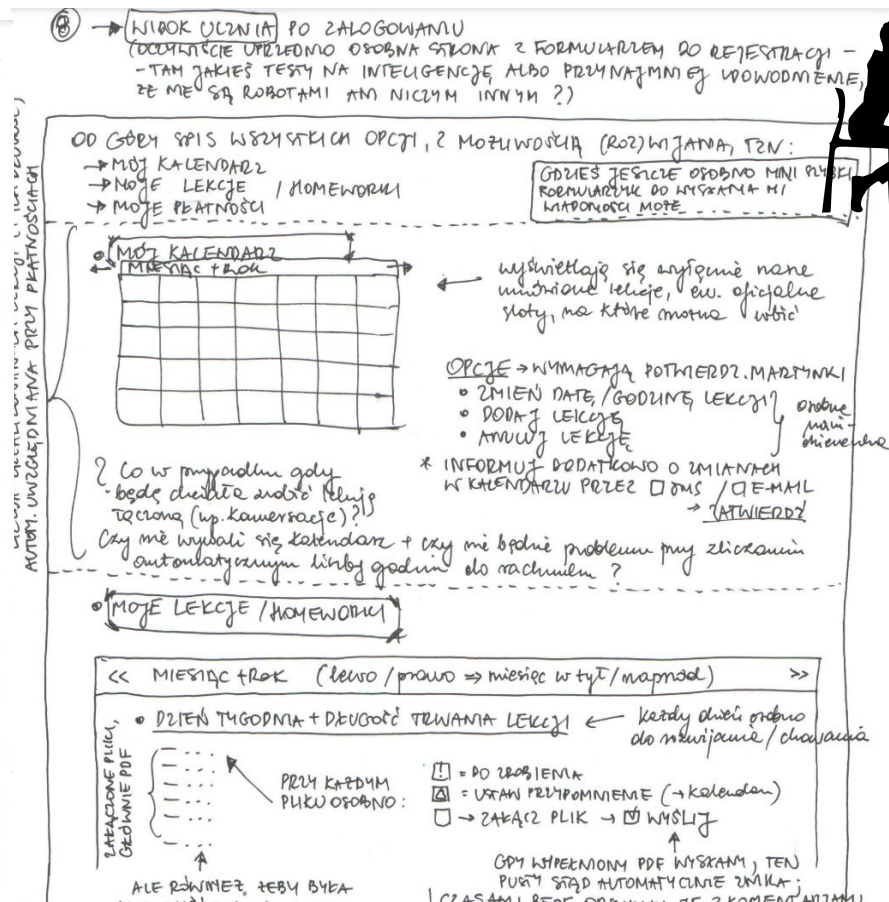 → WIDOK UCZNIA PO ZALOGOWANIU
(OCZYWIŚCIE UPRZEDNIO OSOBNA STRONA Z FORMULARZEM DO REJESTRACJI –
– TAM JAKIEŚ TESTY NA INTELIGENCJĘ ALBO PRZYNAJMNIEJ UDOWODNIENIE,
ŻE NIE SĄ ROBOTAMI ANI NICZYM INNYM ?)
OD GÓRY SPIS WSZYSTKICH OPCJI, Z MOŻLIWOŚCIĄ (ROZ)WIJANIA, TZN:
→ MÓJ KALENDARZ
→ MOJE LEKCJE / HOMEWORKI
→ MOJE PŁATNOŚCI
GDZIEŚ JESZCZE OSOBNO MINI SZYBKI
FORMULARZYK DO WYSŁANIA MI
WIADOMOŚCI MOŻE
AUTOM. UWZGLĘDNIANA PRZY PŁATNOŚCIACH
• MÓJ KALENDARZ
MIESIĄC + ROK
← wyświetlają się wyłącznie nasze
umówione lekcje, ew. oficjalne
sloty, na które można wbić
OPCJE → WYMAGAJĄ POTWIERDZ. MARTYNKI
• ZMIEŃ DATĘ / GODZINĘ LEKCJI
• DODAJ LEKCJĘ
• ANULUJ LEKCJĘ
osobne
okienka
* INFORMUJ DODATKOWO O ZMIANACH
W KALENDARZU PRZEZ □ SMS / □ E-MAIL
→ ZATWIERDŹ
? Co w przypadku gdy
będę chciała zrobić lekcję
łączoną (np. konwersacje)?
Czy nie wywali się kalendarz + czy nie będzie problemu przy zliczaniu
automatycznym liczby godzin do rachunku ?
• MOJE LEKCJE / HOMEWORKI
<< MIESIĄC + ROK (lewo / prawo ⇒ miesiąc w tył / naprzód) >>
• DZIEŃ TYGODNIA + DŁUGOŚĆ TRWANIA LEKCJI ← każdy dzień osobno
do rozwijania / chowania
ZAŁĄCZONE PLIKI,
GŁÓWNIE PDF
PRZY KAŻDYM
PLIKU OSOBNO:
! = DO ZROBIENIA
= USTAW PRZYPOMNIENIE (→ kalendarz)
□ → ZAŁĄCZ PLIK → ☑ WYŚLIJ
GDY WYPEŁNIONY PDF WYSŁANY, TEN
PUSTY STĄD AUTOMATYCZNIE ZNIKA;
ALE RÓWNIEŻ, ŻEBY BYŁA